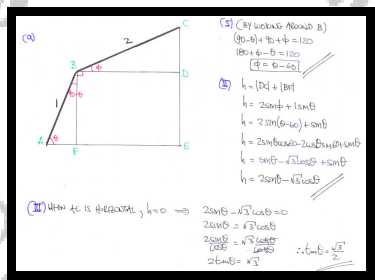 (a)
C
2
B
ϕ
D
90-θ
1
A
θ
F
E
(I) (BY LOOKING AROUND B)
(90-θ)+90+ϕ=120
180+ϕ-θ=120
ϕ=θ-60
(II) h=|DC|+|BF|
h=2sinϕ+1sinθ
h=2sin(θ-60)+sinθ
h=2sinθcos60-2cosθsin60+sinθ
h=sinθ-√3cosθ+sinθ
h=2sinθ-√3cosθ
(III) WHEN AC IS HORIZONTAL, h=0 ⇒ 2sinθ-√3cosθ=0
2sinθ=√3cosθ
2sinθ/cosθ=√3cosθ/cosθ
2tanθ=√3
∴tanθ=√3/2